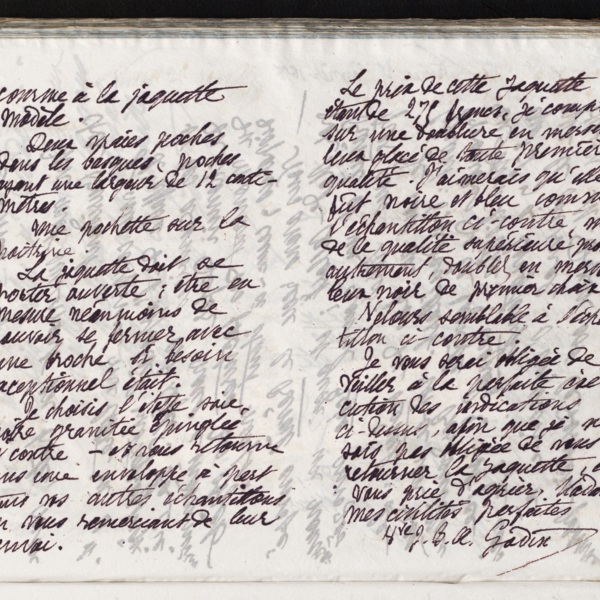 comme à la jaquette
modèle.
Deux vraies poches
dans les basques, poches
ayant une largeur de 12 centi-
mètres.
une pochette sur la
poitrine.
La jaquette doit se
porter ouverte ; être en
mesure néanmoins de
pouvoir se fermer avec
une broche si besoin
exceptionnel était.
Je choisis l'étoffe soie
noire granitée épinglée
ci contre – et vous retourne
sous une enveloppe à part
tous vos autres échantillons
en vous remerciant de leur
envoi.
Le prix de cette jaquette
étant de 275 francs, j'y comp
sur une doublure en merveil
leux glacé de toute première
qualité. J'aimerais qu'elle
fût noire et bleu comme
l'échantillon ci-contre, m
de la qualité supérieure,
autrement, doublez en merveil
leux noir de premier choix
Velours semblable à l'échan
tillon ci-contre.
Je vous serai obligée de
veiller à la parfaite exé
cution des indications
ci-dessus, afin que je n
sois pas obligée de vous
retourner la jaquette, e
vous prie d'agréer, Mada
mes civilités parfaites
Vve J. B. A. Godin